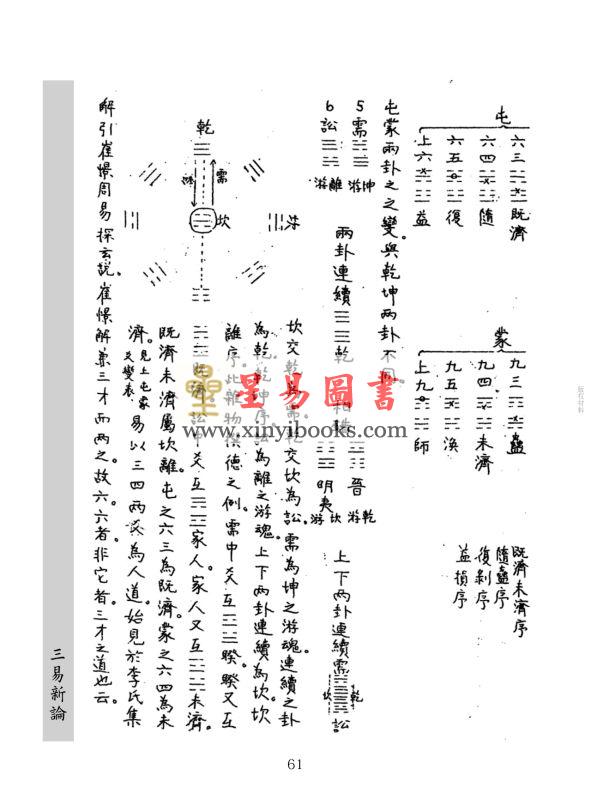 屯
六三 既濟
六四 隨
六五 復
上六 益
蒙
九三 蠱
九四 未濟
九五 渙
上九 師
既濟未濟序
隨蠱序
復剝序
益損序
屯蒙兩卦之之變與乾坤兩卦不同。
5需 坤游
6訟 離游
兩卦連續 乾
晉 乾游
明夷 坎游
上下兩卦連續需 訟
乾
坎
乾
需
坎
坎交乾為需。乾交坎為訟。需為坤之游魂。連續之卦
為乾。乾坤序。訟為離之游魂。上下兩卦連續為坎。坎
離序。此雜物撰德之例。需中爻互睽。睽又互
既濟。訟中爻互家人。家人又互未濟。
既濟未濟屬坎離。屯之六三為既濟。蒙之六四為未
濟。見上屯蒙爻變表。易以三四兩爻為人道。始見於李氏集
解引崔憬周易探玄說。崔憬解兼三才而兩之。故六。六者。非它者。三才之道也云。
星易圖書
www.xinyibooks.com
版权材料
三易新論
61